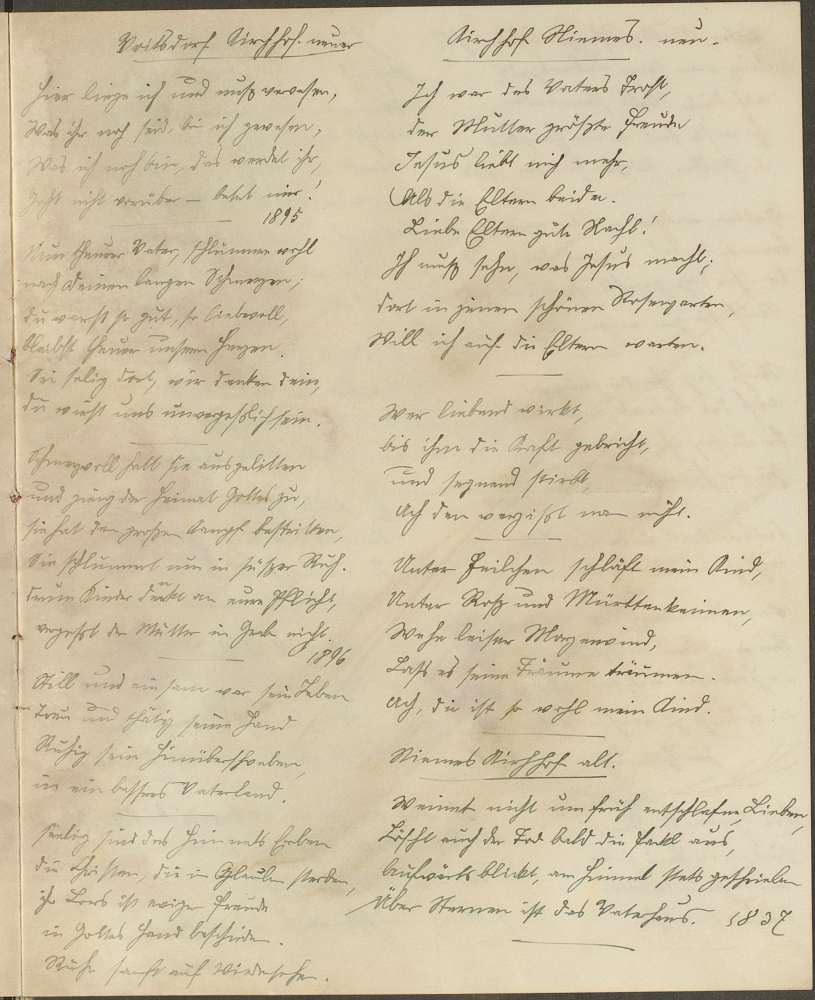 Voitsdorf Kirchhof. neuer
Hier liege ich und muß verwesen,
Was ihr noch seid, bin ich gewesen,
Was ich noch bin, das werdet ihr,
Geht nicht vorüber – betet mir!
1895
Nun theurer Vater, schlummre wohl
nach Deinen langen Schmerzen;
du warst so gut, so liebevoll,
bleibst theuer unsern Herzen.
Sei selig dort, wir denken dein,
du wirst uns unvergeßlich sein.
Schmerzvoll hatt sie ausgelitten
und ging der Heimat Gottes zu,
sie hat den großen Kampf bestritten,
Sie schlummert nun in süßer Ruh.
Drum Kinder denkt an eure Pflicht,
vergeßt der Mutter im Grabe nicht.
1896
Still und einsam war sein Leben
Treu und thätig seine Hand
Ruhig sein Hinüberschweben
in ein bessres Vaterland.
Seelig sind des Himmels Erben
die Christen, die im Glauben sterben,
ihr Loos ist ewige Freude
in Gottes Hand beschieden.
Ruhe sanft auf Wiedersehn.
Kirchhof Niemes. neu.
Ich war des Vaters Trost,
der Mutter größte Freude
Jesus liebt mich mehr,
Als die Eltern beide.
Liebe Eltern gute Nacht!
Ich muß sehn, was Jesus macht;
dort in jenem schönen Rosengarten,
Will ich auf die Eltern warten.
Wer liebend wirkt,
bis ihm die Kraft gebricht,
und segnend stirbt,
Ach den vergißt man nicht.
Unter Veilchen schläft mein Kind,
Unter Ros und Mürttenkeimen,
Wehe leiser Morgenwind,
Laß es seine Träume träumen.
Ach, die ist so wohl mein Kind.
Niemes Kirchhof alt.
Weinet nicht um früh entschlafne Lieben,
Löscht auch der Tod bald die Fackl aus,
Aufwärts blickt, am Himmel stets geschrieben
Über Sternen ist das Vaterhaus. 1837